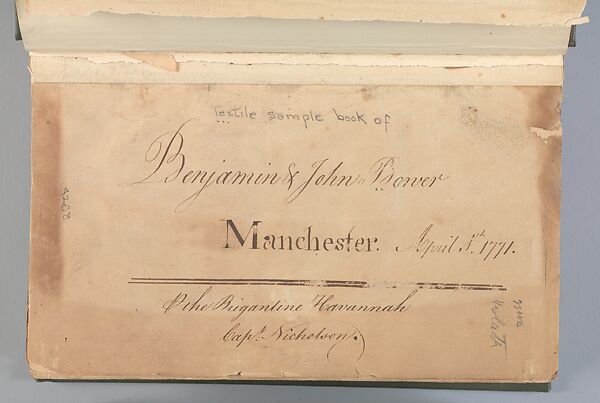 Textile sample book of
Benjamin & John Bower
Manchester. April 5th. 1771.
⅌ the Brigantine Havannah
Capt. Nicholson.